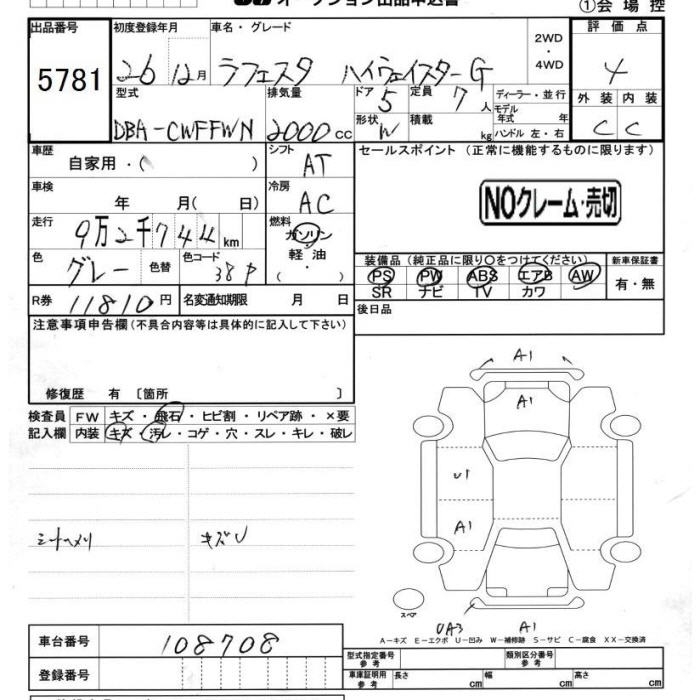 オークション出品申込書
①会場控
出品番号 5781
初度登録年月 26 12月
車名・グレード ラフェスタ ハイウェイスターG
2WD・4WD
評価点 4
型式 DBA-CWFFWN
排気量 2000cc
ドア 5
定員 7人
形状 W
積載 kg
ディーラー・並行
モデル年式 年
ハンドル 左・右
外装 C
内装 C
車歴 自家用・( )
シフト AT
セールスポイント (正常に機能するものに限ります)
車検 年 月( 日)
冷房 AC
NOクレーム・売切
走行 9万2千744km
燃料 ガソリン・軽油・( )
色 グレー 色替
色コード 38P
装備品 (純正品に限り○をつけてください)
PS PW ABS エアB AW
SR ナビ TV カワ
新車保証書 有・無
R券 11810円
名変通知期限 月 日
後日品
注意事項申告欄 (不具合内容等は具体的に記入して下さい)
修復歴 有 〔箇所 〕
検査員記入欄
FW キズ・飛石・ヒビ割・リペア跡・×要
内装 キズ・汚レ・コゲ・穴・スレ・キレ・破レ
A1
A1
U1
A1
シートヘメリ
キズU
スペア
UA3 A1
A-キズ E-エクボ U-凹み W-補修跡 S-サビ C-腐食 XX-交換済
車台番号 108708
型式指定番号 参考
類別区分番号 参考
登録番号
車庫証明用 参考 長さ cm 幅 cm 高さ cm